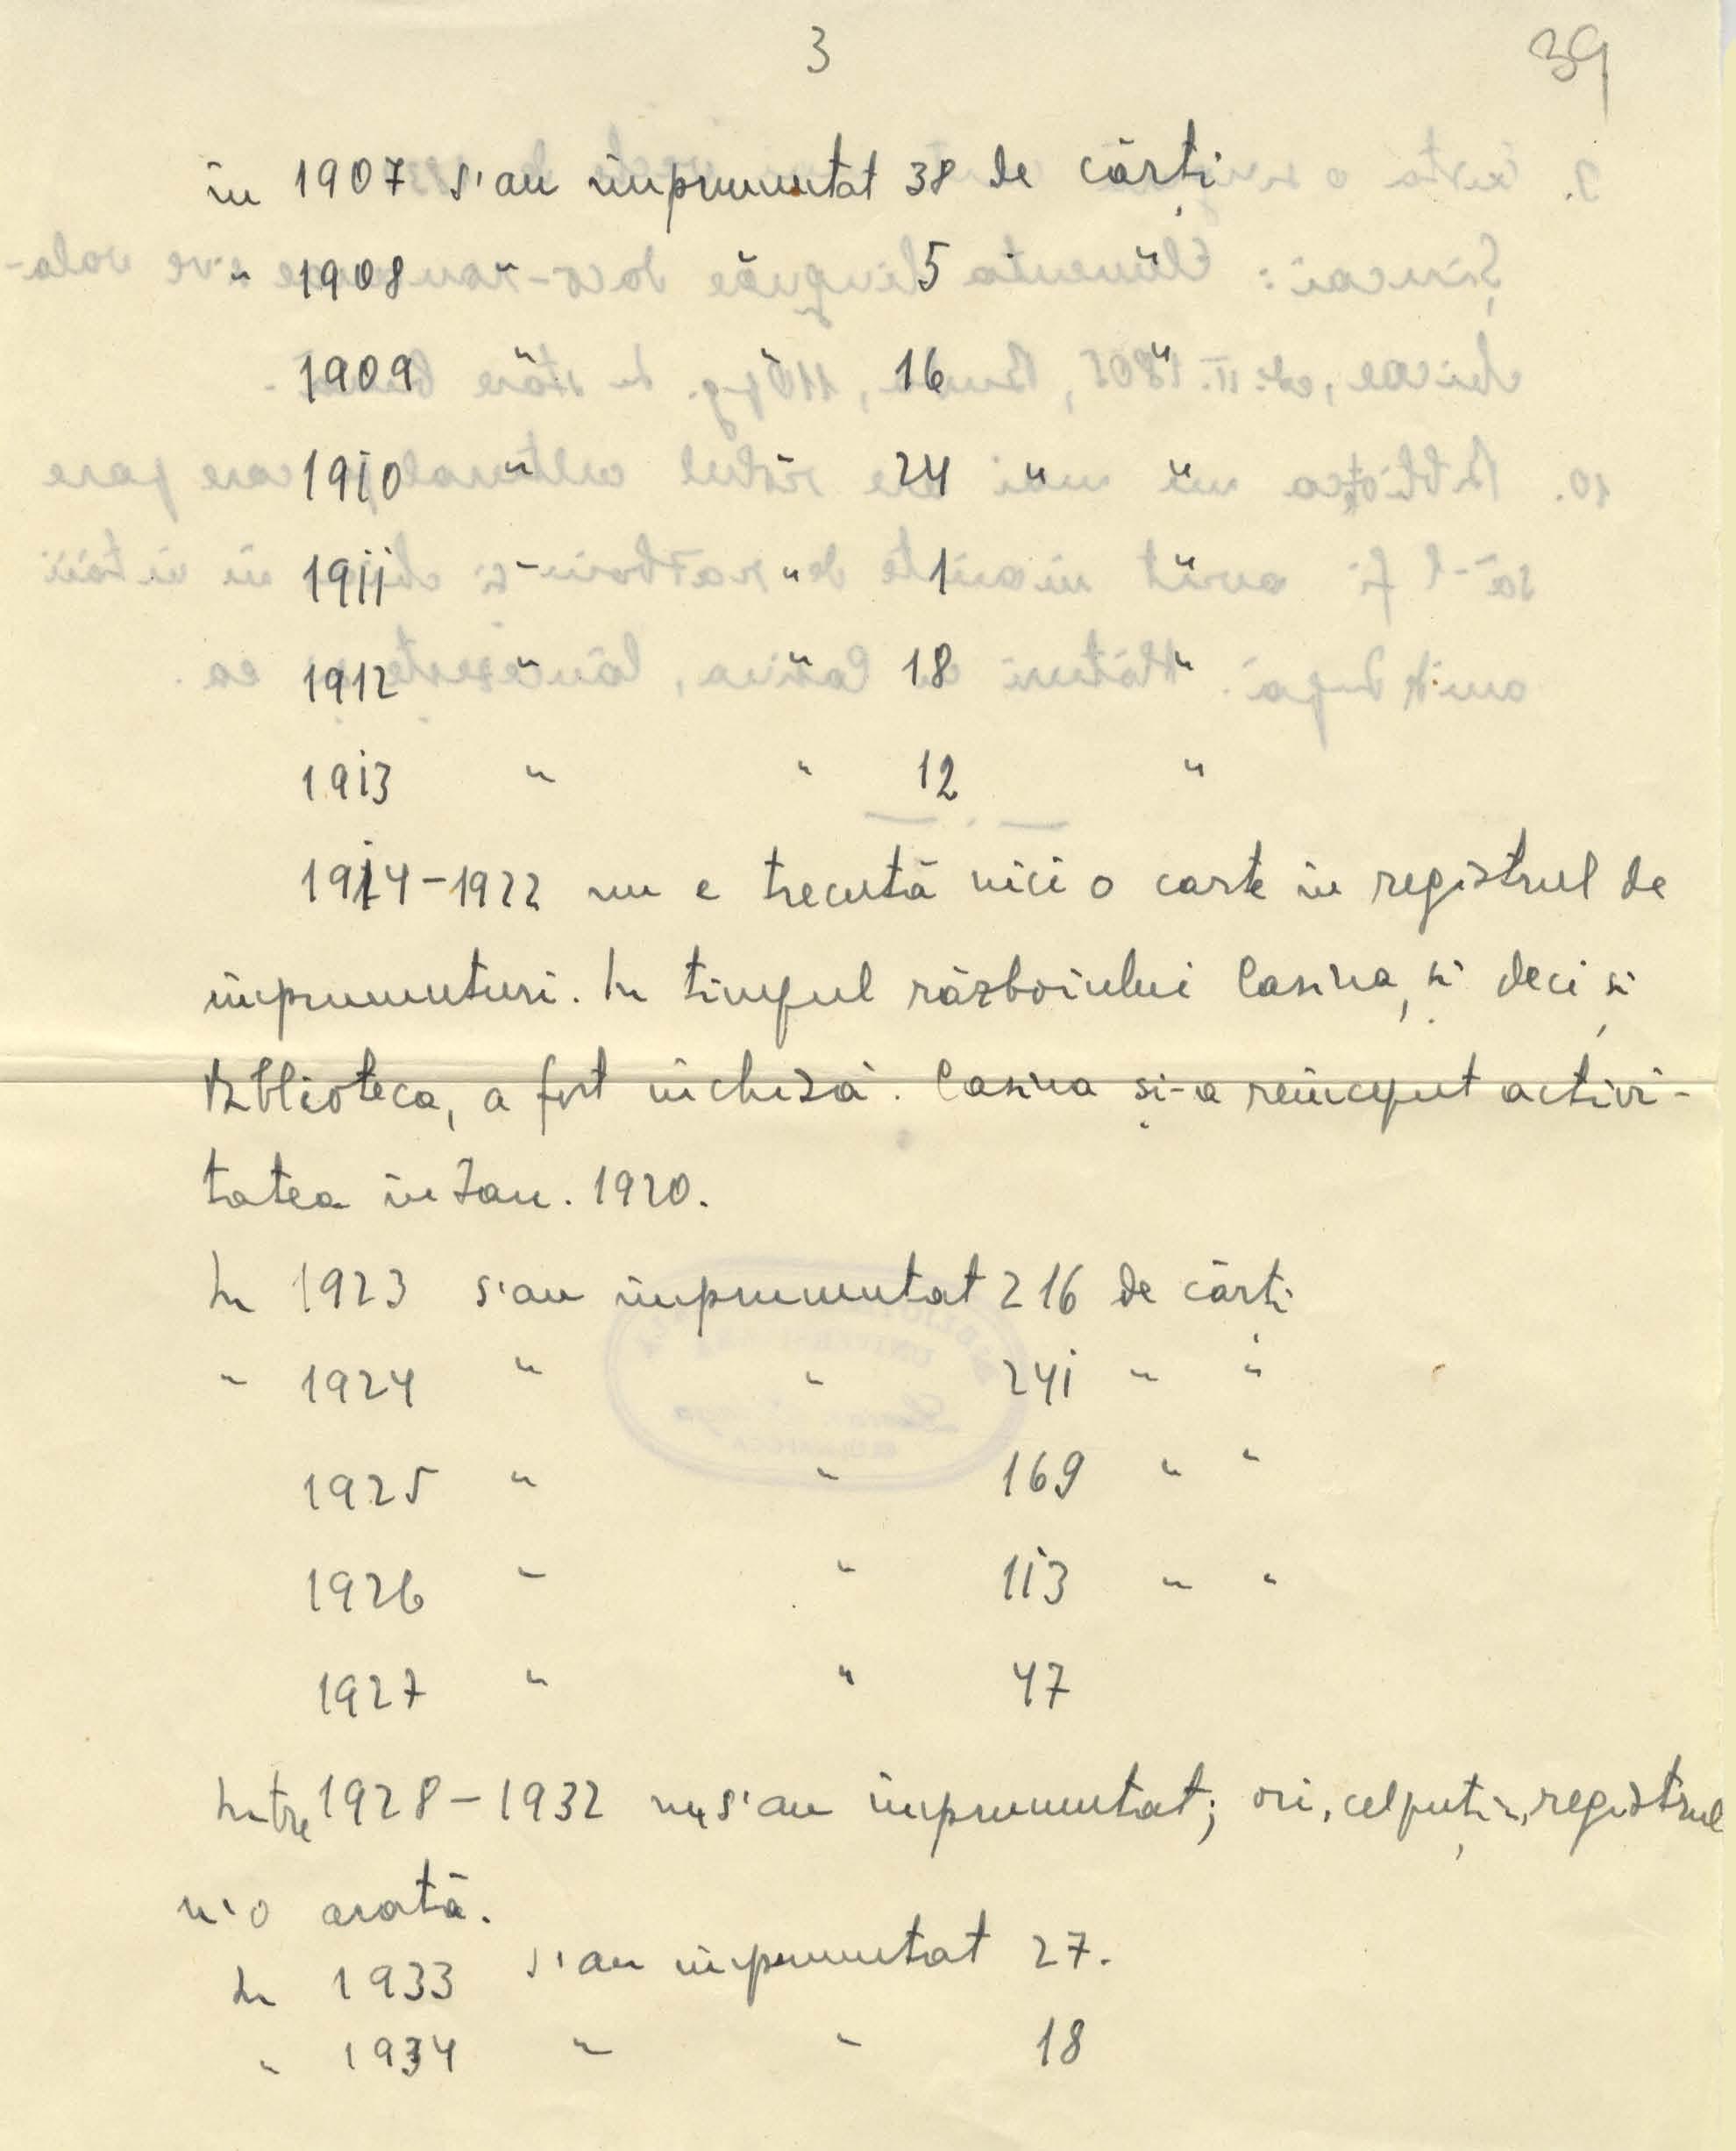 3
39
în 1907 s'au împrumutat 38 de cărți
" 1908 " 5 "
1909 " " 16 "
1910 " " 24 " "
1911 " " 1 "
1912 " " 18 "
1913 " " 12 "
1914-1922 nu e trecută nici o carte în registrul de
împrumuturi. In timpul războiului Casina, și deci și
Biblioteca, a fost închisă. Casina și-a reînceput activi-
tatea în Ian. 1920.
In 1923 s'au împrumutat 216 de cărți
" 1924 " " 241 " "
1925 " " 169 " "
1926 " " 113 " "
1927 " " 47
Intre 1928-1932 nu s'au împrumutat; ori, cel puțin, registrul
n'o arată.
In 1933 s'au împrumutat 27.
" 1934 " " 18